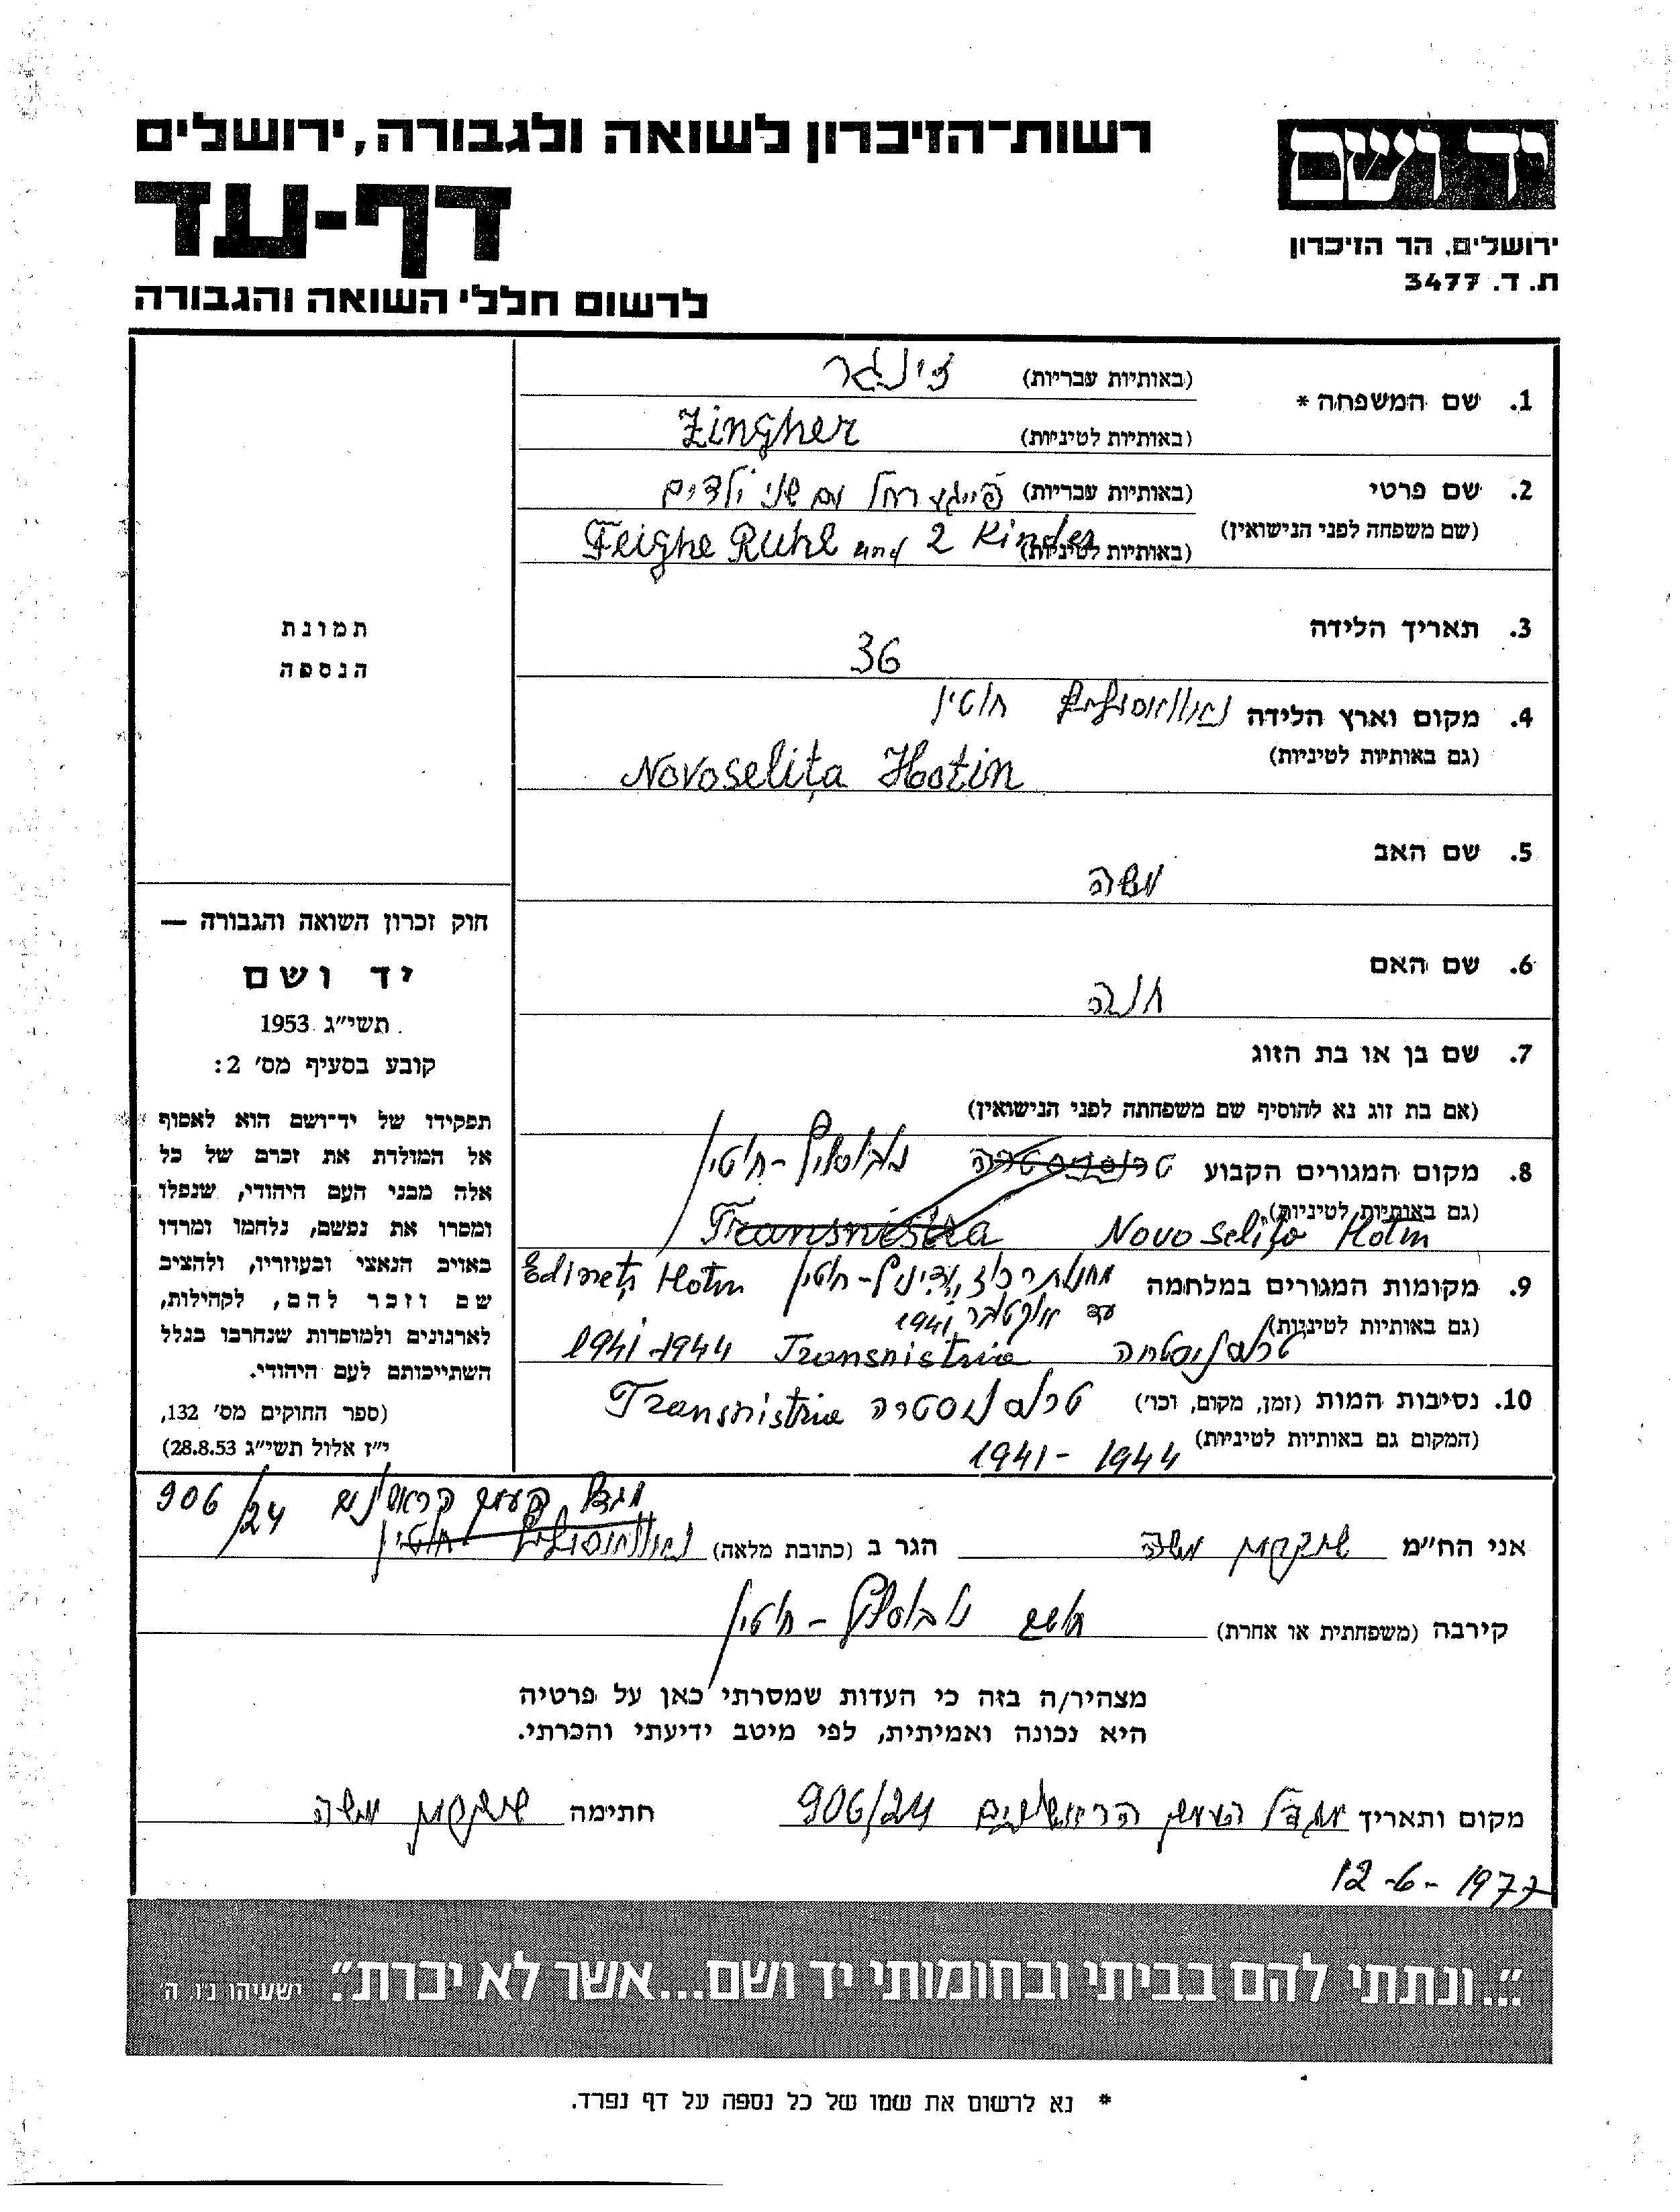 רשות־הזיכרון לשואה ולגבורה, ירושלים
דף-עד
לרשום חללי השואה והגבורה
יד ושם
ירושלים, הר הזיכרון
ת. ד. 3477
1. שם המשפחה * (באותיות עבריות) זינגר
(באותיות לטיניות) Zingher
2. שם פרטי (באותיות עבריות) פייגע רחל עם שני ילדים
(שם משפחה לפני הנישואין) (באותיות לטיניות) Feighe Ruhl and 2 Kinder
3. תאריך הלידה 36
4. מקום וארץ הלידה חוטין
(גם באותיות לטיניות) Novoselița Hotin
5. שם האב משה
6. שם האם חנה
7. שם בן או בת הזוג
(אם בת זוג נא להוסיף שם משפחתה לפני הנישואין)
8. מקום המגורים הקבוע טרנסניסטריה נובוסליץ-חוטין
(גם באותיות לטיניות) Transnistria Novo Selița Hotin
9. מקומות המגורים במלחמה מחנות ריכוז, ידיניץ-חוטין Edineț Hotin
עד אוקטובר 1941
(גם באותיות לטיניות) טרנסניסטריה Transnistria 1941-1944
10. נסיבות המות (זמן, מקום, וכו׳) טרנסניסטריה Transnistria
(המקום גם באותיות לטיניות) 1941 - 1944
תמונת
הנספה
חוק זכרון השואה והגבורה —
יד ושם
תשי״ג 1953
קובע בסעיף מס׳ 2:
תפקידו של יד־ושם הוא לאסוף
אל המולדת את זכרם של כל
אלה מבני העם היהודי, שנפלו
ומסרו את נפשם, נלחמו ומרדו
באויב הנאצי ובעוזריו, ולהציב
שם וזכר להם, לקהילות,
לארגונים ולמוסדות שנחרבו בגלל
השתייכותם לעם היהודי.
(ספר החוקים מס׳ 132,
י״ז אלול תשי״ג 28.8.53)
מגדל העמק 906/24
אני הח״מ משה הגר ב (כתובת מלאה)
קירבה (משפחתית או אחרת) נובוסליץ-חוטין
מצהיר/ה בזה כי העדות שמסרתי כאן על פרטיה
היא נכונה ואמיתית, לפי מיטב ידיעתי והכרתי.
מקום ותאריך מגדל העמק 906/24 חתימה משה
12-6-1977
"...ונתתי להם בביתי ובחומותי יד ושם...אשר לא יכרת". ישעיהו נ״ו, ה׳
* נא לרשום את שמו של כל נספה על דף נפרד.